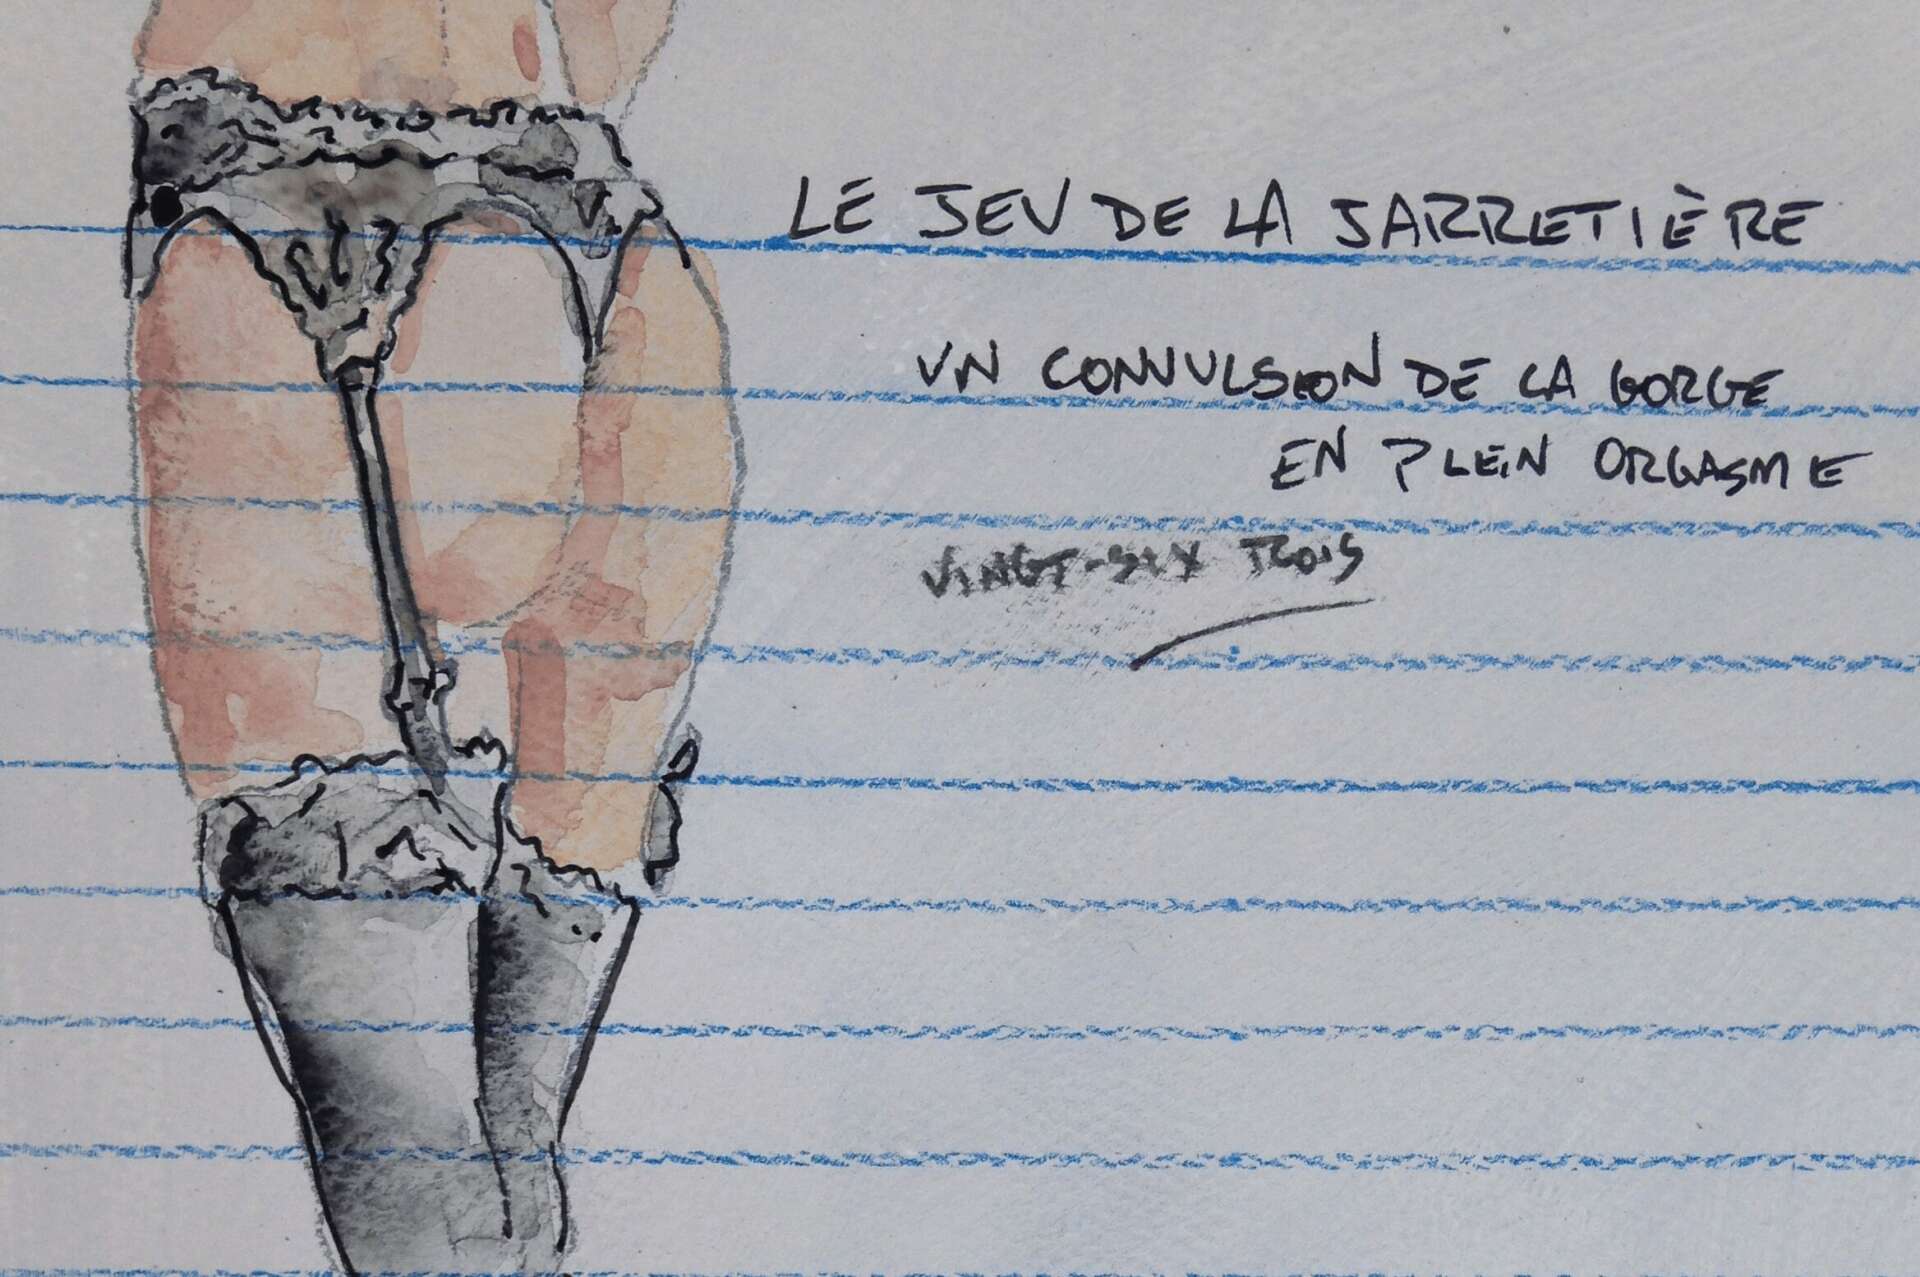 LE JEU DE LA JARRETIÈRE
UN CONVULSION DE LA GORGE
EN PLEIN ORGASME
VINGT-SIX TROIS